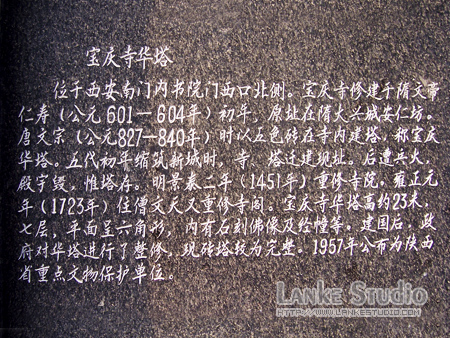 宝庆寺华塔
位于西安南门内书院门西口北侧。宝庆寺修建于隋文帝
仁寿（公元601—604年）初年，原址在隋大兴城安仁坊。
唐文宗（公元827—840年）时以五色砖在寺内建塔，称宝庆
华塔。五代初年缩筑新城时，寺、塔迁建现址。后遭兵火，
殿宇毁，惟塔存。明景泰二年（1451年）重修寺院，雍正元
年（1723年）住僧文天又重修寺阁。宝庆寺华塔高约23米，
七层，平面呈六角形，内有石刻佛像及经幢等。建国后，政
府对华塔进行了整修，现砖塔较为完整。1957年公布为陕西
省重点文物保护单位。
LANKE STUDIO
HTTP://WWW.LANKESTUDIO.COM